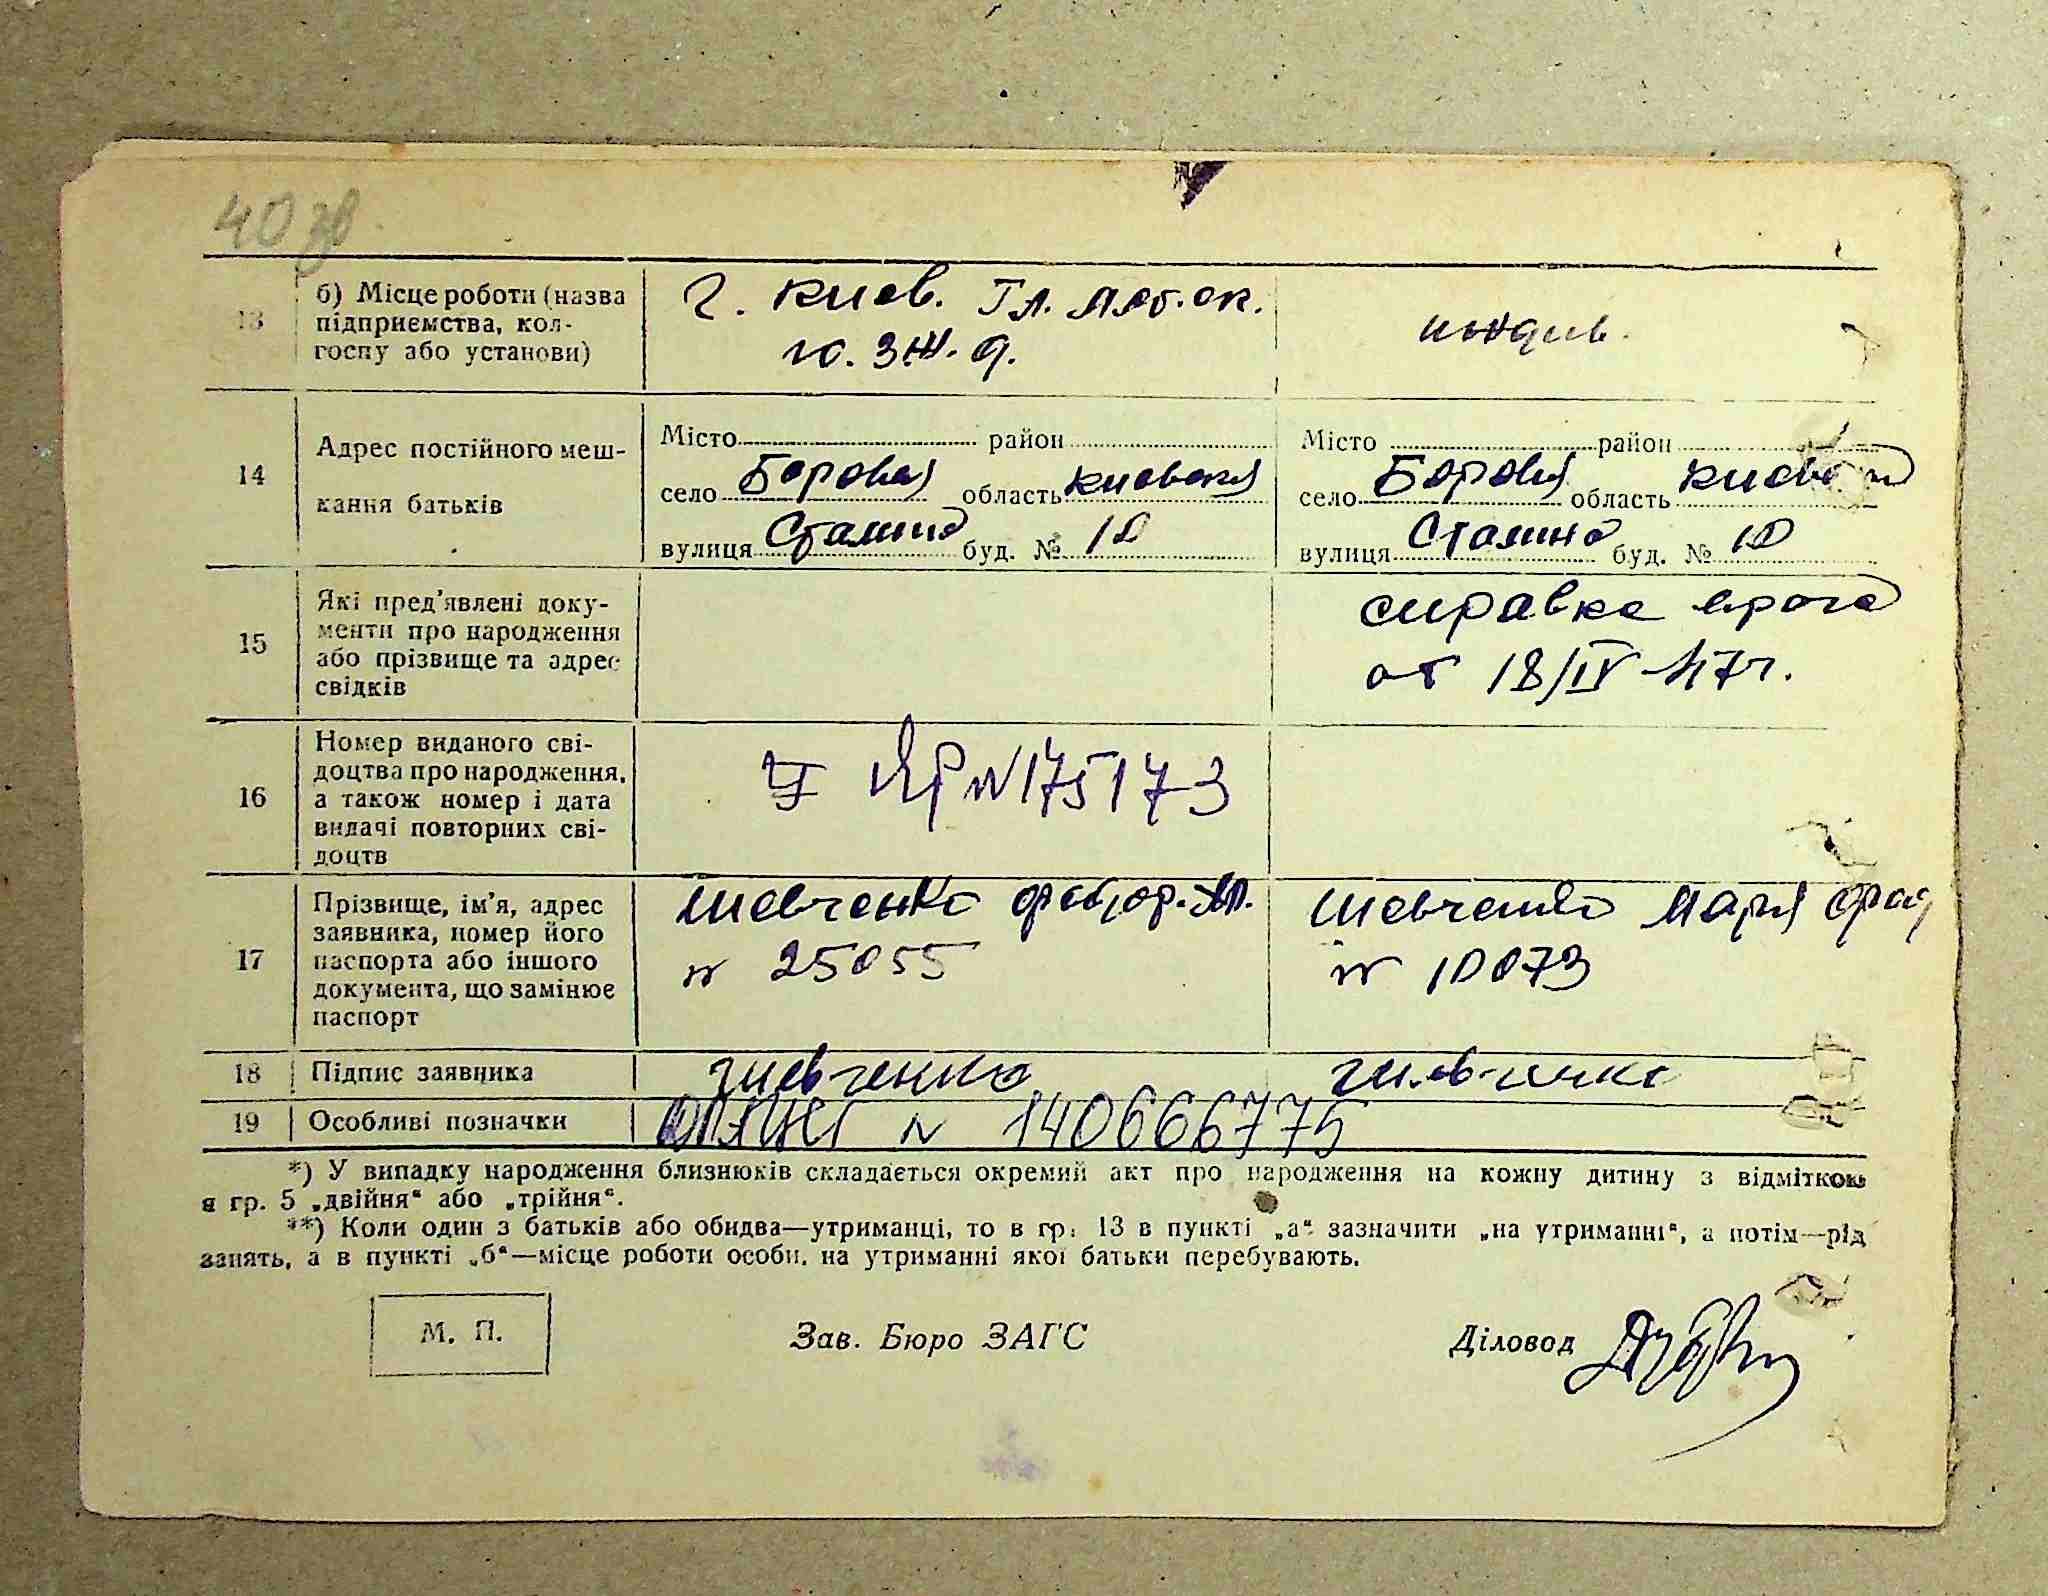 40 зв
13
б) Місце роботи (назва
підприємства, кол-
госпу або установи)
г. Киев. Гл. мат. ск.
ю. з ж. д.
иждив.
14
Адрес постійного меш-
кання батьків
Місто район
село Боровая область Киевская
вулиця Сталина буд. № 10
Місто район
село Боровая область Киевская
вулиця Сталина буд. № 10
15
Які пред'явлені доку-
менти про народження
або прізвище та адрес
свідків
справка врача
от 18/IV 47 г.
16
Номер виданого сві-
доцтва про народження,
а також номер і дата
видачі повторних сві-
доцтв
N 175173
17
Прізвище, ім'я, адрес
заявника, номер його
паспорта або іншого
документа, що замінює
паспорт
Шевченко
N 25055
Шевченко Мария
N 10073
18
Підпис заявника
Шевченко
Шевченко
19
Особливі позначки
N 140666775
*) У випадку народження близнюків складається окремий акт про народження на кожну дитину з відміткою
в гр. 5 „двійня“ або „трійня“.
**) Коли один з батьків або обидва—утриманці, то в гр. 13 в пункті „а“ зазначити „на утриманні“, а потім—рід
занять, а в пункті „б“—місце роботи особи, на утриманні якої батьки перебувають.
М. П.
Зав. Бюро ЗАГС
Діловод